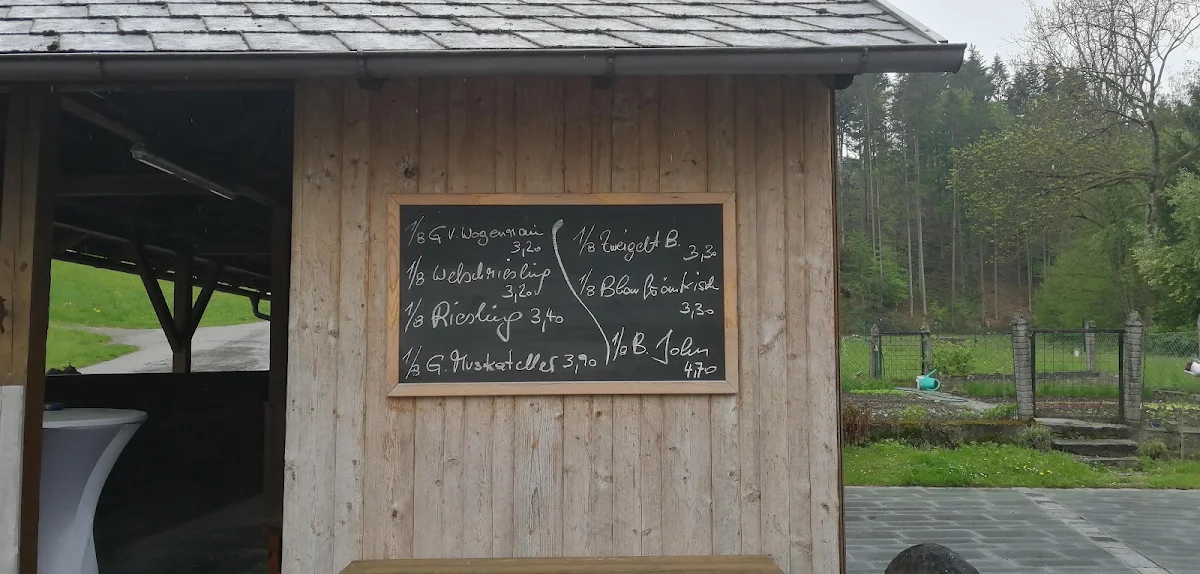 1/8 G.V. Wogenrain
3,20
1/8 Welschriesling
3,20
1/8 Riesling 3,40
1/8 G. Muskateller 3,90
1/8 Zweigelt B.
3,30
1/8 Blaufränkisch
3,30
1/8 B. John
4,70